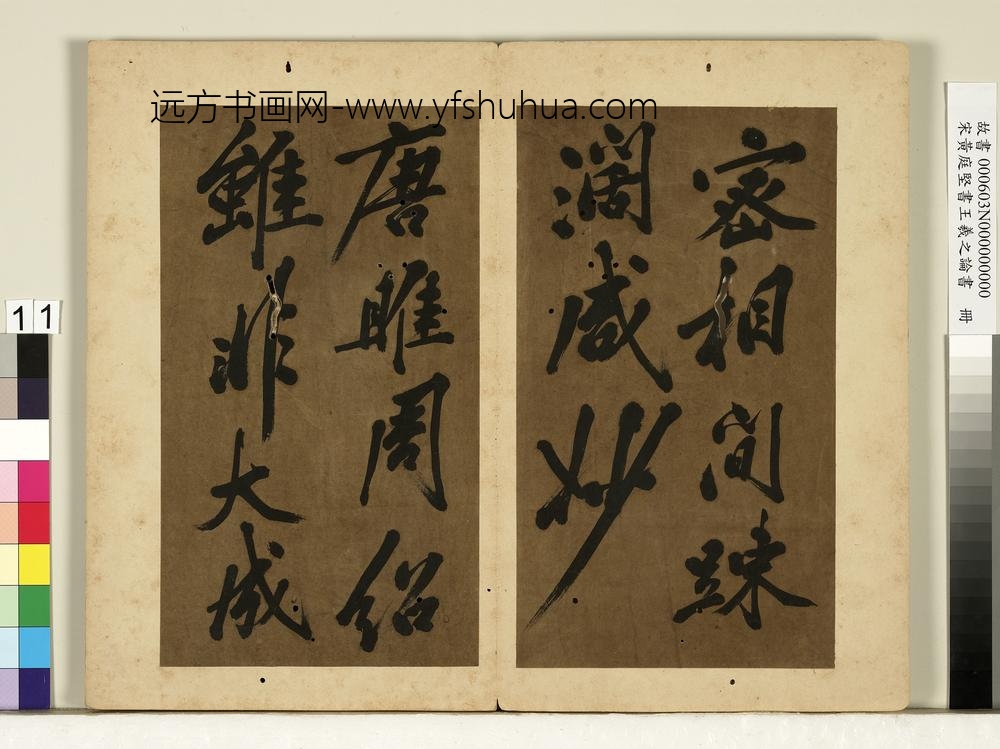 远方书画网-www.yfshuhua.com
密相间踈
濶咸妙
唐雎周紹
雖非大成
故書 000603N000000000
宋黃庭堅書王羲之論書 冊
11